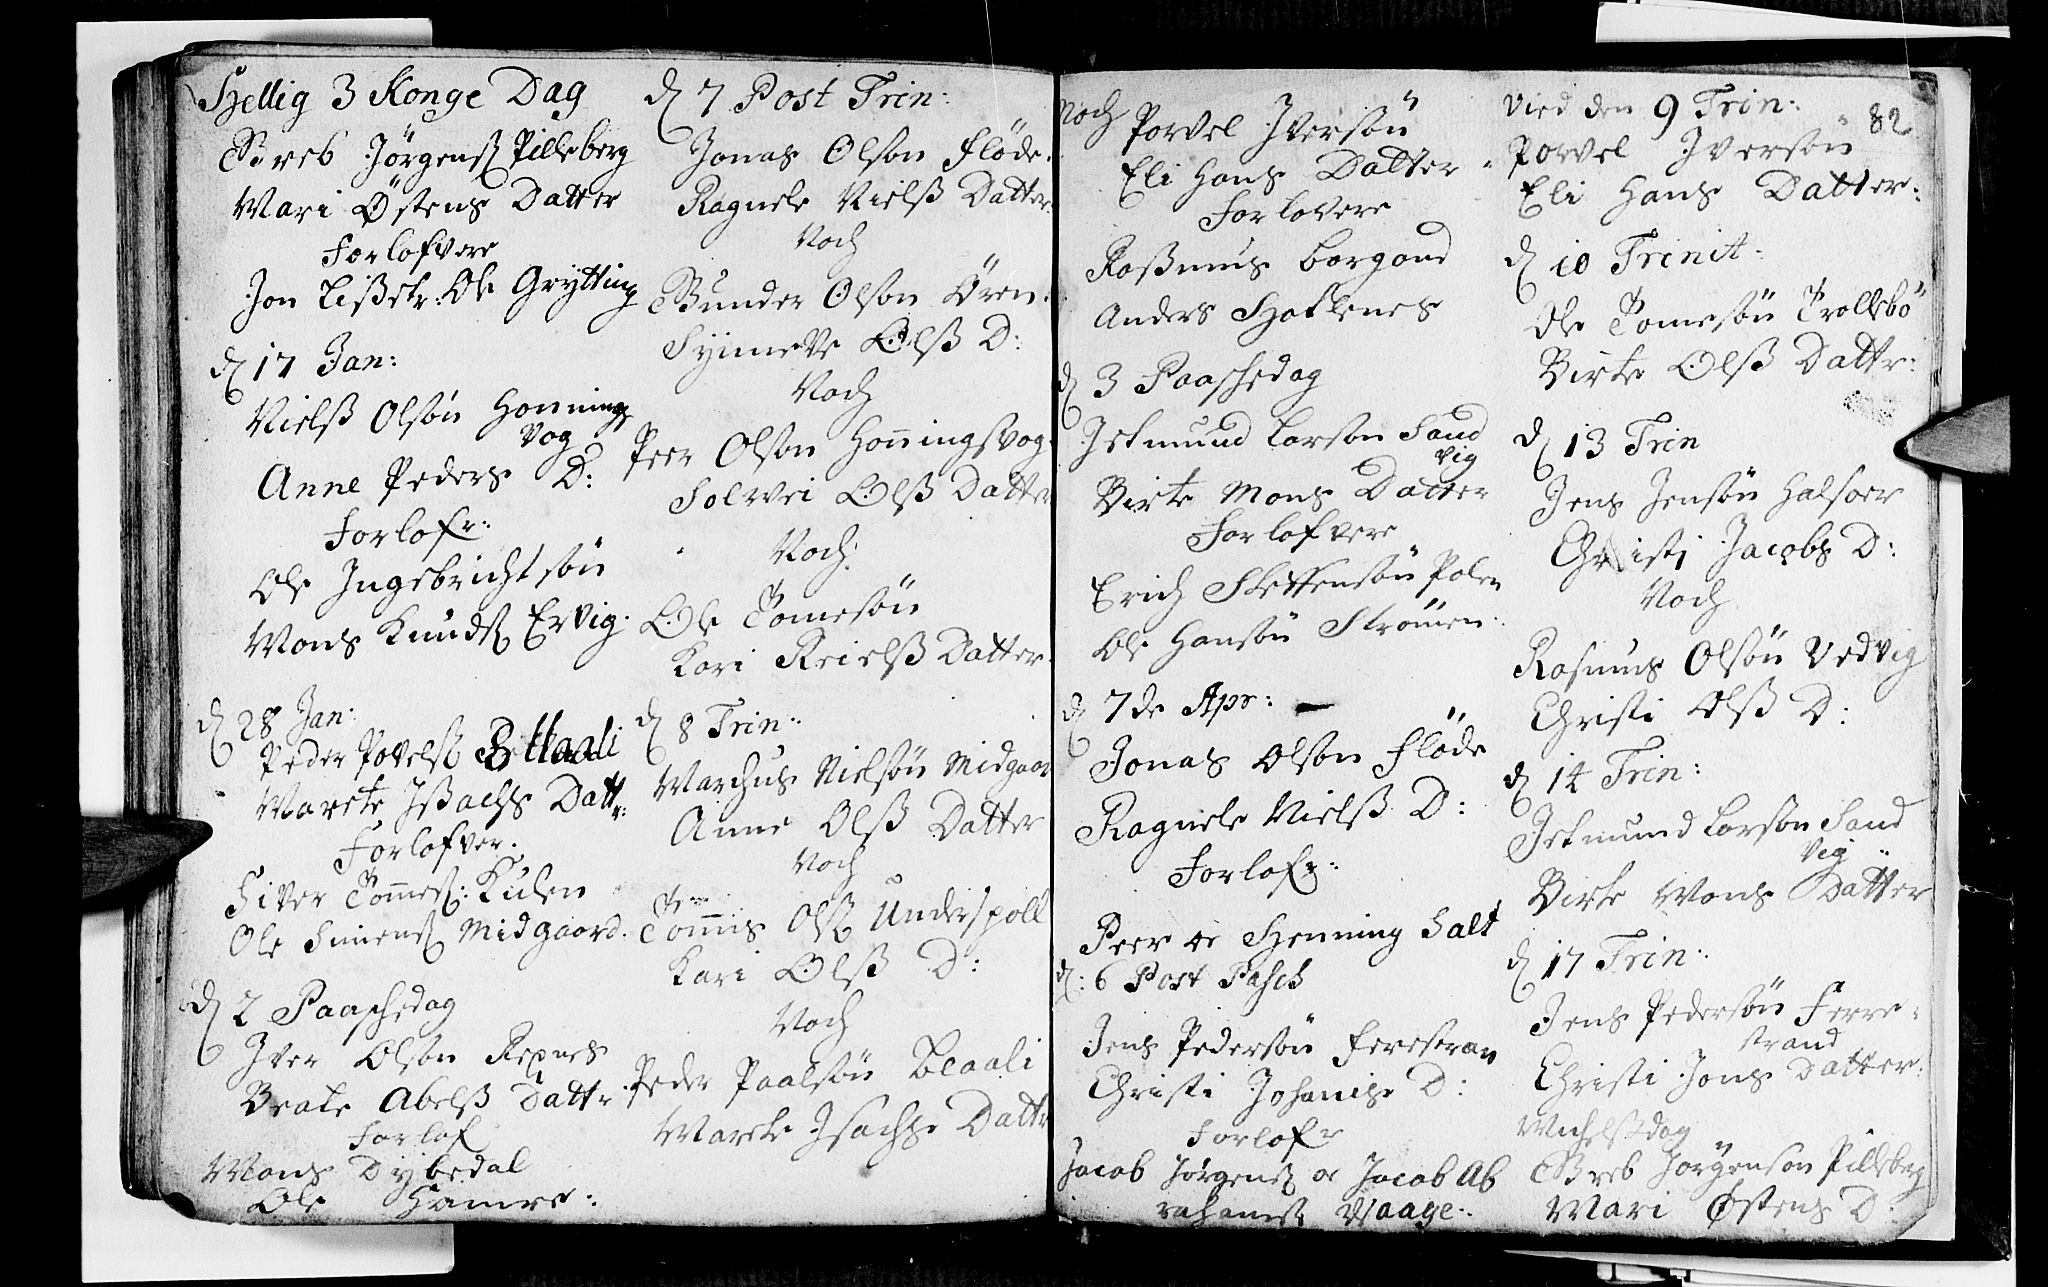 Hellig 3 Konge Dag
Breb Jørgenß Pilleberg
Mari Østens Datter
Forlofvere
Jon Lißetr: Ole Grytting
d 17 Jan:
Nielß Olsøn Honnings
vog
Anne Peders D:
Forlofr:
Ole Ingebrichtsøn
Mons Knudß Ervig.
d 28 Jan:
Peder Povelß
Marete Ißachs Datt
r:
Forlofver.
Siver Tom̄eß: Kulen
Ole Simenß Midgaard.
d 2 Paaschedag
Iver Olsøn Refnes
Beate Abelß Dattr.
Forlof
Mons Dybedal
Ole Hamre:
d 7 Post Trin:
Jonas Olsøn Fløde.
Ragnele Nielß Datter.
Noch
Gunder Olsøn Ören.
Synneve Olß D:
Noch
Peer Olson Hon̄ingsvog.
Solvei Olß Datter
Noch:
Ole Tomesøn
Kari Reielß Datter.
d 8 Trin:
Marchus Nielsøn Midgaar
Anne Olß Datter
Noch
Tom̄is Olß Underspoll
Kari Olß D:
Noch
Peder Paalsøn Blaali
Marete Isachs Dattr
Noch
Povel Iversøn
Eli Hans Datter
Forlovere
Raßmus borgond
Anders Hoflenes
d 3 Paaschedag
Jetmund Larsøn Sand
vig
Birte Mons Datter
Forlofvere
Erich Steffensøn Polen
Ole Hansøn Strømen.
d 7de Apr:
Jonas Olsøn Fløde
Ragnele Nielß D:
Forlofr:
Peer oc Henning Salt
d: 6 Post Pasch
Jens Pedersøn Ferestran
Christi Johanis D:
Forlofr
Jacob Jørgenß oc Jacob Ab
rahamß Waage.
82
Vied den 9 Trin:
Povel Iversøn
Eli Hans Datter:
d 10 Trinit:
Ole Tomesøn Trollebö
Birte Olß Dattr:
d 13 Trin
Jens Jensøn Halsoer
Christi Jacobs D:
Noch
Rasmus Olsøn Vedvig
Christi Olß D:
d 14 Trin:
Jetmund Larsøn Sand
vig
Birte Mons Datter
d 17 Trin:
Jens Pedersøn Ferre-
strand
Christi Jons Datter:
Michelsdag
Breb Jørgensøn Pilleberg
Mari Østens D: